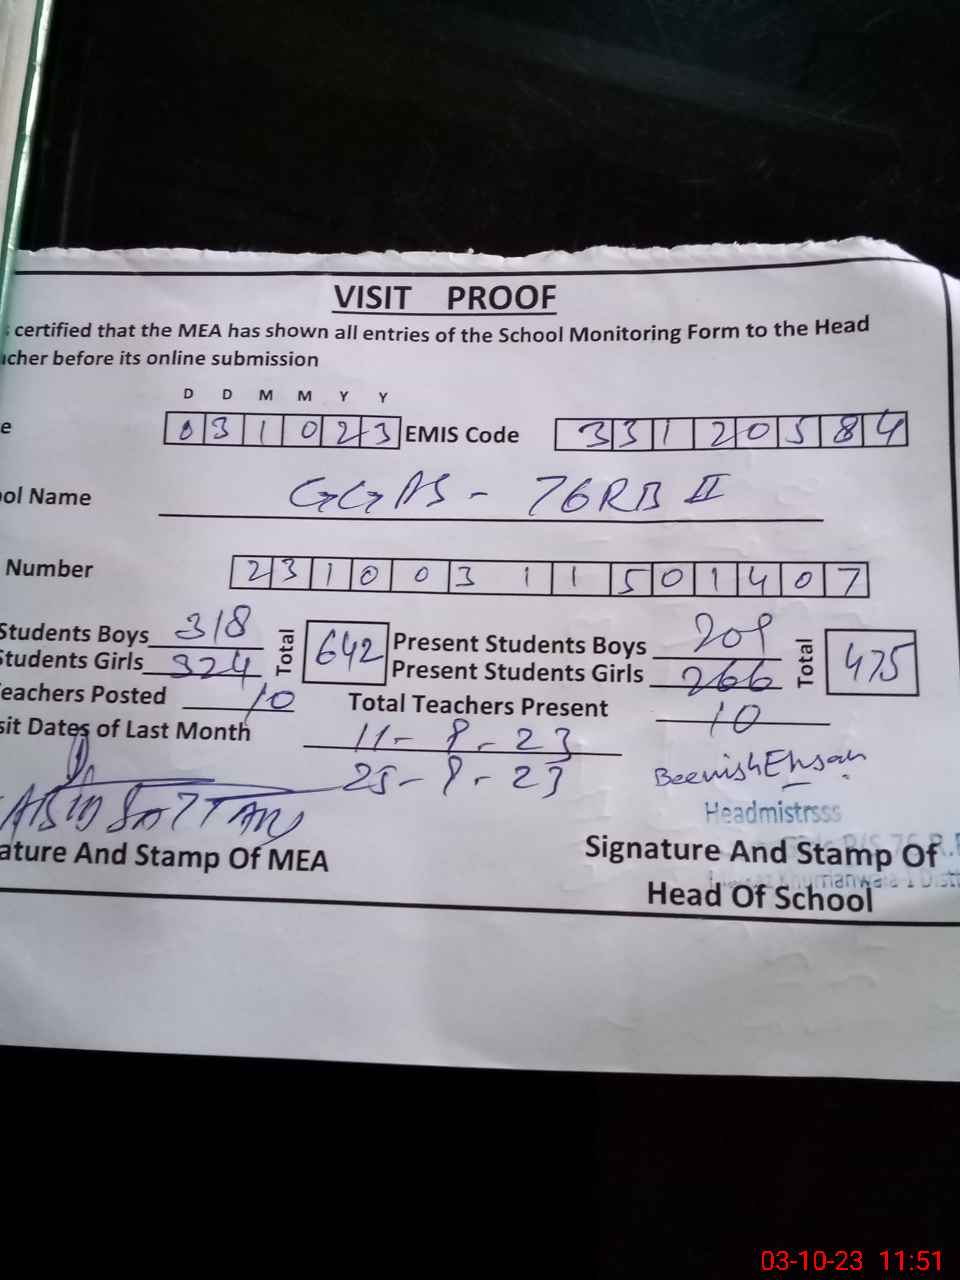 VISIT PROOF
certified that the MEA has shown all entries of the School Monitoring Form to the Head
cher before its online submission
D D M M Y Y
e 031023 EMIS Code 33120584
ol Name GGPS - 76RB II
Number 23100311501407
Students Boys 318 Total 642 Present Students Boys 209 Total 475
Students Girls 324 Present Students Girls 266
eachers Posted 10 Total Teachers Present 10
sit Dates of Last Month 11-9-23
25-9-23
Beenish Ehsan
Headmistrsss
ature And Stamp Of MEA
Signature And Stamp Of
Head Of School
03-10-23 11:51